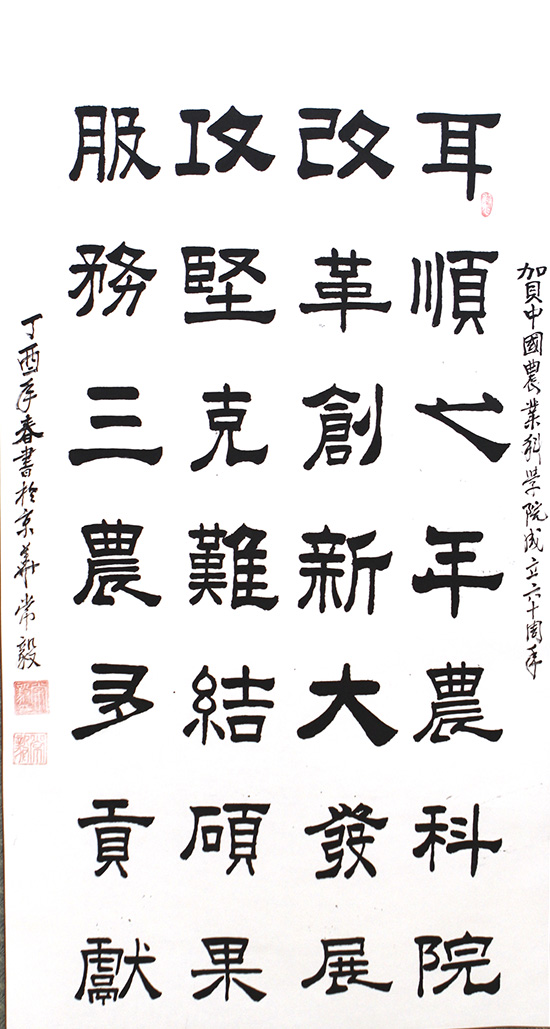 加貝中國農業科学院成立六十周年
耳順之年農科院
改革創新大發展
攻堅克難結碩果
服務三農多貢獻
丁酉年春書於京華常毅